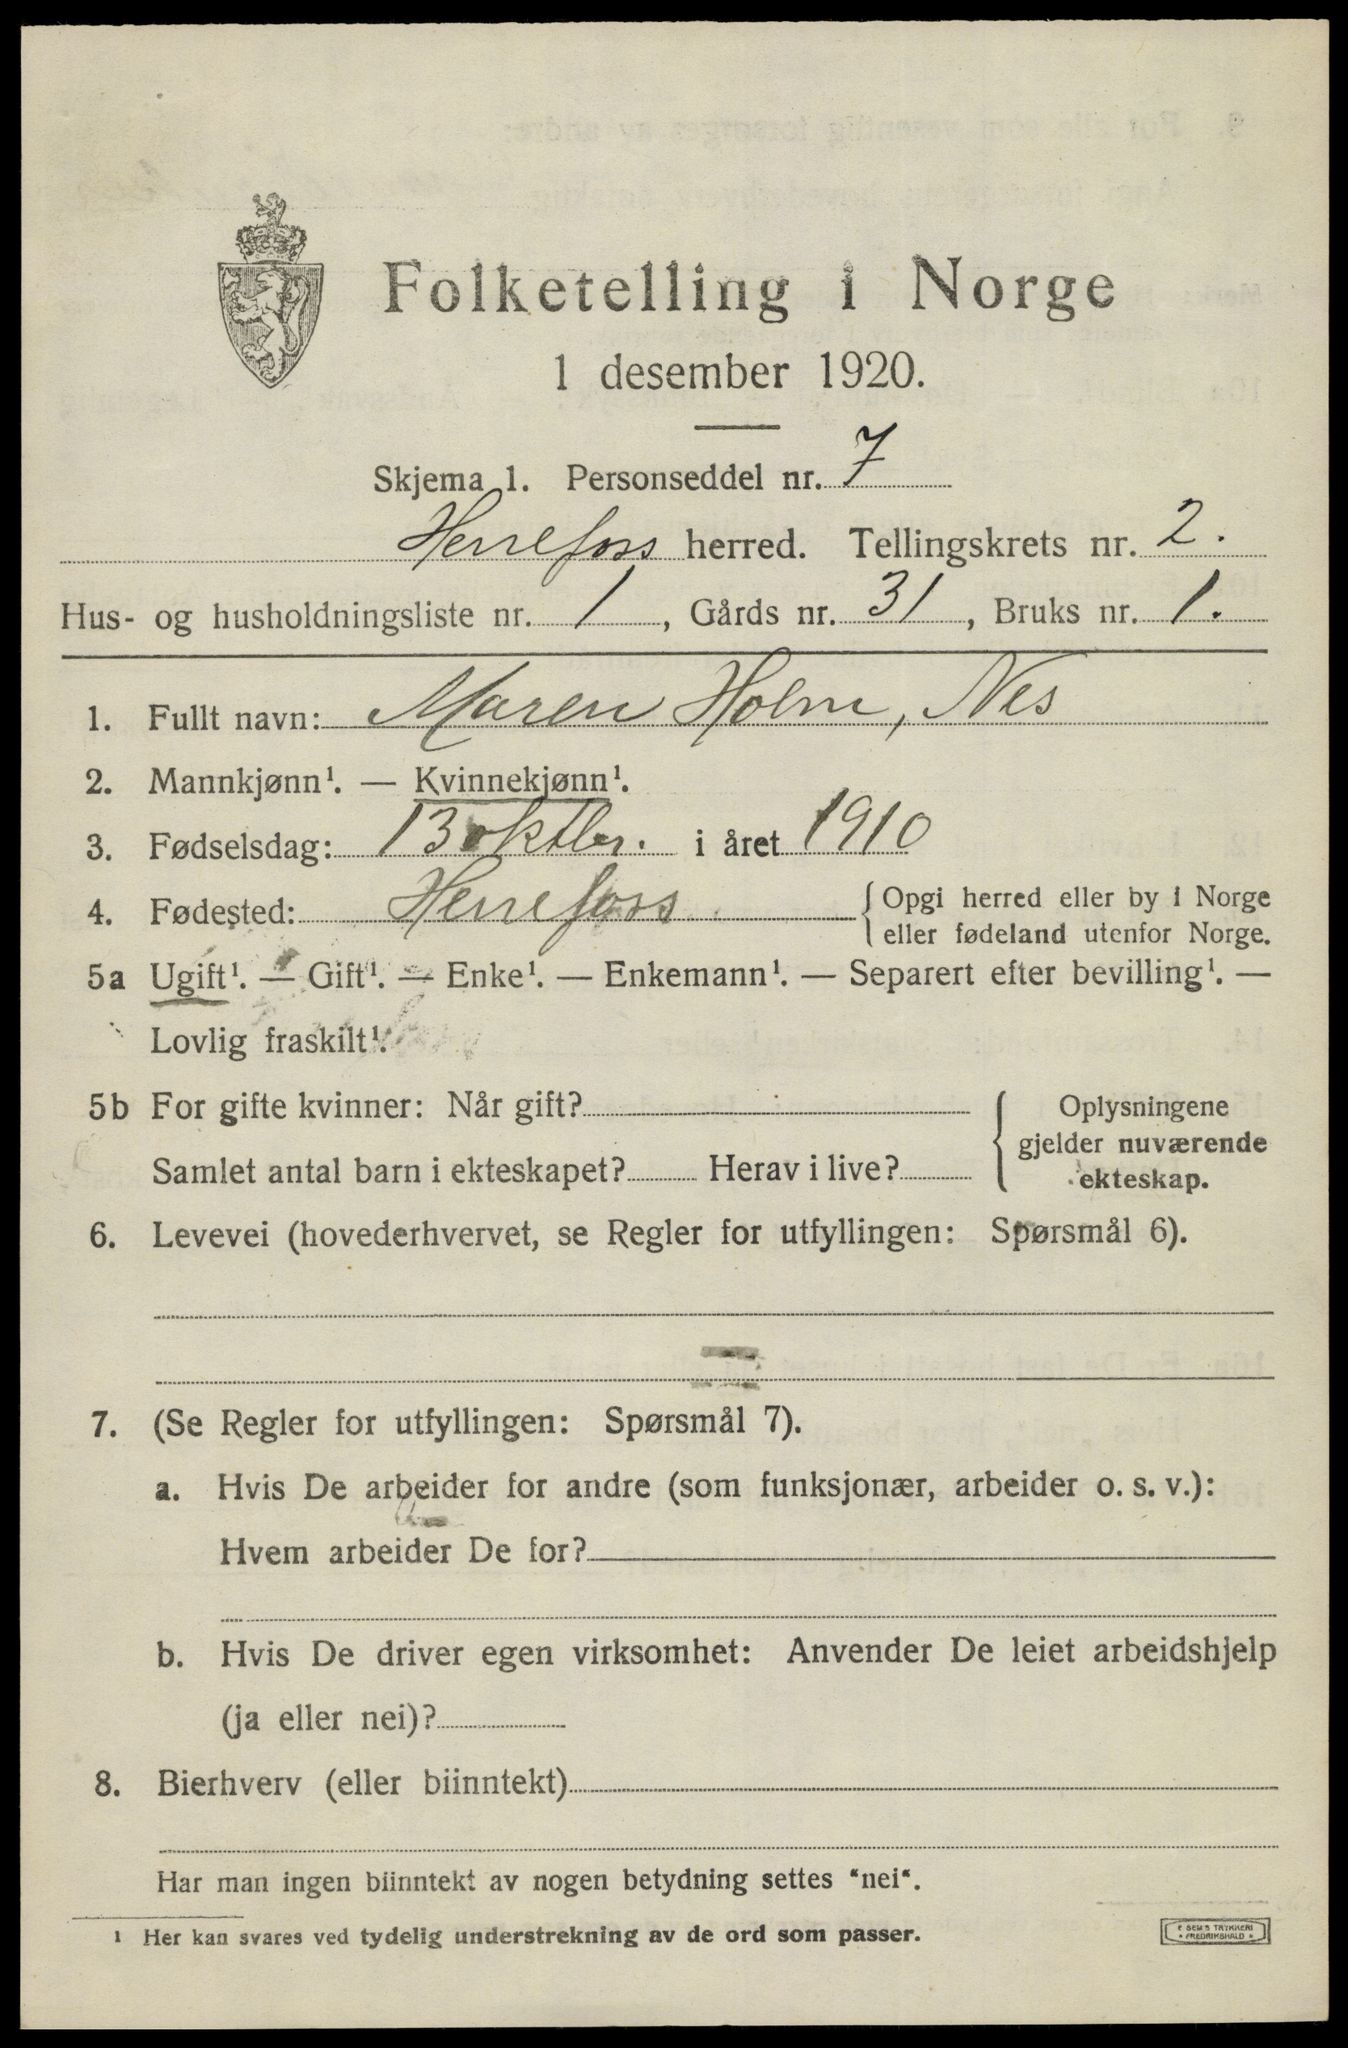 Folketelling i Norge
1 desember 1920.
Skjema 1. Personseddel nr. 7
Herrefoss herred. Tellingskrets nr. 2.
Hus- og husholdningsliste nr. 1, Gårds nr. 31, Bruks nr. 1.
1. Fullt navn: Maren Holm, Nes
2. Mannkjønn¹. — Kvinnekjønn¹.
3. Fødselsdag: 13 oktbr. i året 1910
4. Fødested: Herrefoss { Opgi herred eller by i Norge
eller fødeland utenfor Norge.
5a Ugift¹. — Gift¹. — Enke¹. — Enkemann¹. — Separert efter bevilling¹. —
Lovlig fraskilt¹.
5b For gifte kvinner: Når gift?
Samlet antal barn i ekteskapet? Herav i live?
{ Oplysningene
gjelder nuværende
ekteskap.
6. Levevei (hovederhvervet, se Regler for utfyllingen: Spørsmål 6).
7. (Se Regler for utfyllingen: Spørsmål 7).
a. Hvis De arbeider for andre (som funksjonær, arbeider o. s. v.):
Hvem arbeider De for?
b. Hvis De driver egen virksomhet: Anvender De leiet arbeidshjelp
(ja eller nei)?
8. Bierhverv (eller biinntekt)
Har man ingen biinntekt av nogen betydning settes "nei".
¹ Her kan svares ved tydelig understrekning av de ord som passer.
E SEM'S TRYKKERI
* FREDRIKSHALD *